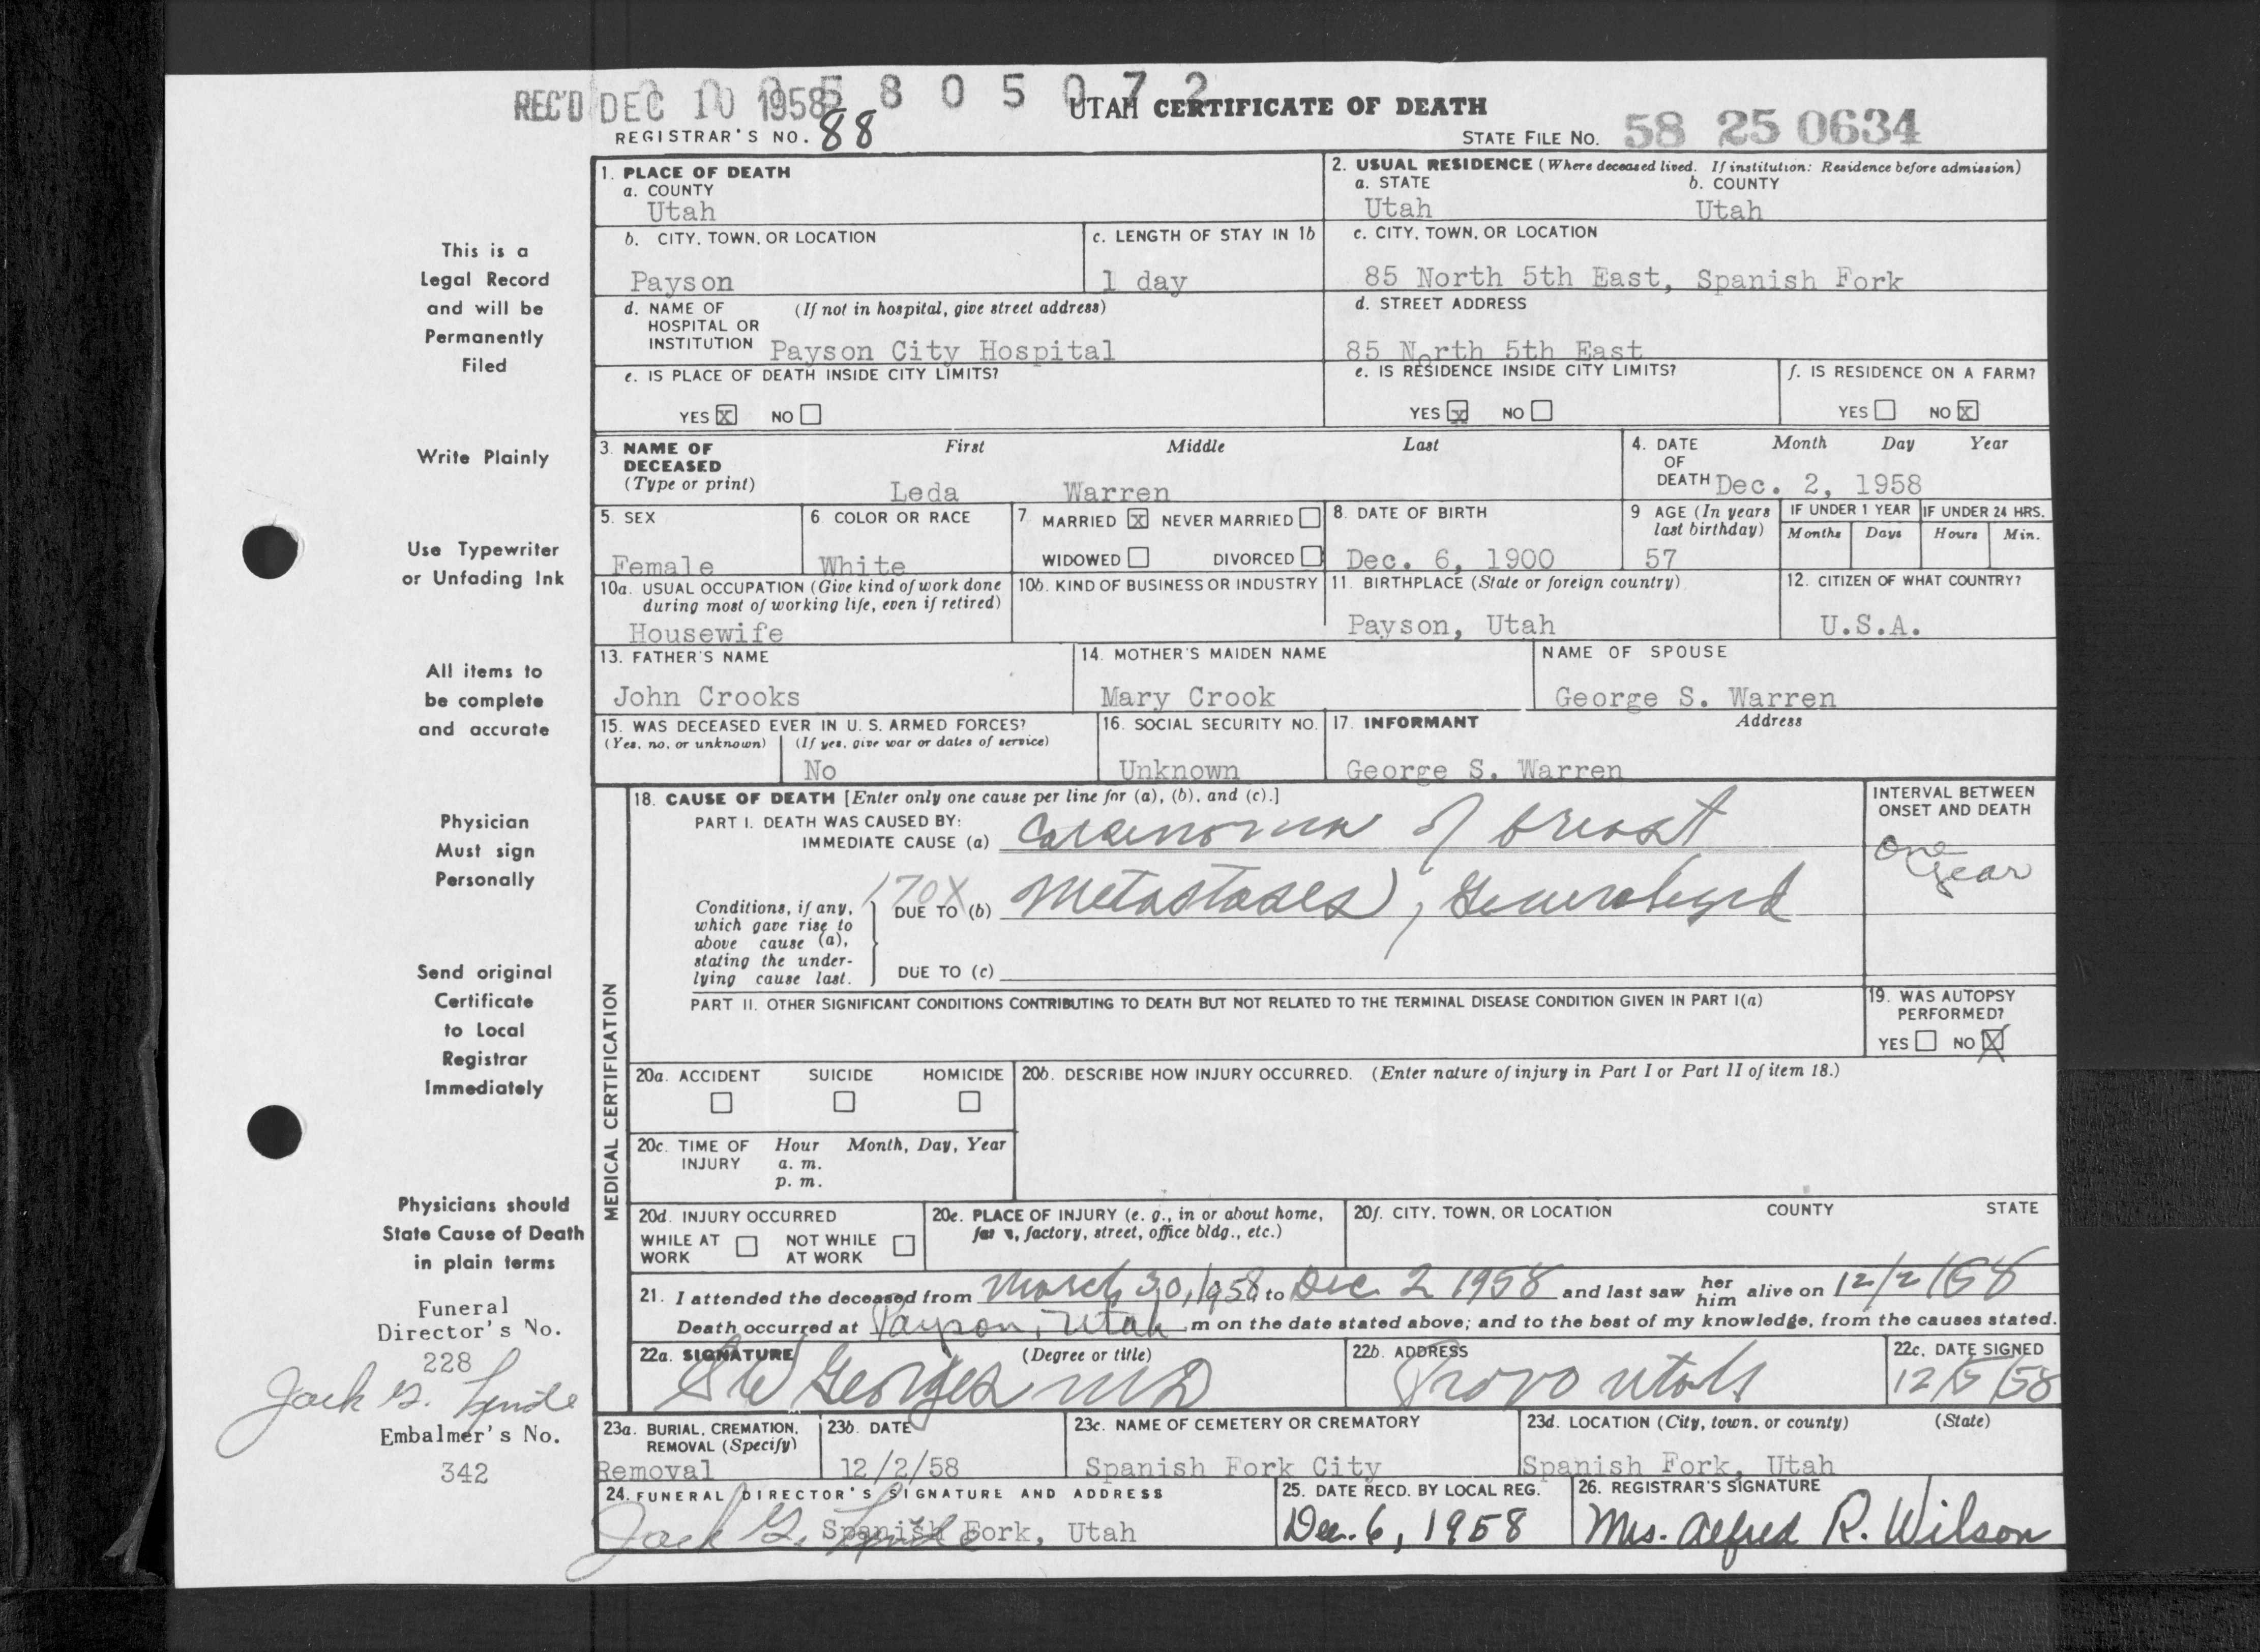 REC'D DEC 10 1958 5 8 0 5 0 7 2
UTAH CERTIFICATE OF DEATH
REGISTRAR'S NO. 88
STATE FILE NO. 58 25 0634
This is a
Legal Record
and will be
Permanently
Filed
Write Plainly
Use Typewriter
or Unfading Ink
All items to
be complete
and accurate
Physician
Must sign
Personally
Send original
Certificate
to Local
Registrar
Immediately
Physicians should
State Cause of Death
in plain terms
Funeral
Director's No.
228
Jack G.
Embalmer's No.
342
1. PLACE OF DEATH
a. COUNTY
Utah
2. USUAL RESIDENCE (Where deceased lived. If institution: Residence before admission)
a. STATE b. COUNTY
Utah Utah
b. CITY, TOWN, OR LOCATION
Payson
c. LENGTH OF STAY IN 1b
1 day
c. CITY, TOWN, OR LOCATION
85 North 5th East, Spanish Fork
d. NAME OF (If not in hospital, give street address)
HOSPITAL OR
INSTITUTION Payson City Hospital
d. STREET ADDRESS
85 North 5th East
e. IS PLACE OF DEATH INSIDE CITY LIMITS?
YES X NO
e. IS RESIDENCE INSIDE CITY LIMITS?
YES X NO
f. IS RESIDENCE ON A FARM?
YES NO X
3. NAME OF First Middle Last
DECEASED
(Type or print) Leda Warren
4. DATE Month Day Year
OF
DEATH Dec. 2, 1958
5. SEX
Female
6 COLOR OR RACE
White
7 MARRIED X NEVER MARRIED
WIDOWED DIVORCED
8. DATE OF BIRTH
Dec. 6, 1900
9 AGE (In years
last birthday)
57
IF UNDER 1 YEAR IF UNDER 24 HRS.
Months Days Hours Min.
10a. USUAL OCCUPATION (Give kind of work done
during most of working life, even if retired)
Housewife
10b. KIND OF BUSINESS OR INDUSTRY
11. BIRTHPLACE (State or foreign country)
Payson, Utah
12. CITIZEN OF WHAT COUNTRY?
U.S.A.
13. FATHER'S NAME
John Crooks
14. MOTHER'S MAIDEN NAME
Mary Crook
NAME OF SPOUSE
George S. Warren
15. WAS DECEASED EVER IN U. S. ARMED FORCES?
(Yes, no, or unknown) (If yes, give war or dates of service)
No
16. SOCIAL SECURITY NO.
Unknown
17. INFORMANT Address
George S. Warren
MEDICAL CERTIFICATION
18. CAUSE OF DEATH [Enter only one cause per line for (a), (b), and (c).]
PART I. DEATH WAS CAUSED BY:
IMMEDIATE CAUSE (a) Carcinoma of breast
INTERVAL BETWEEN
ONSET AND DEATH
One
year
170X
DUE TO (b) Metastases, Generalized
Conditions, if any,
which gave rise to
above cause (a),
stating the under-
lying cause last.
DUE TO (c)
PART II. OTHER SIGNIFICANT CONDITIONS CONTRIBUTING TO DEATH BUT NOT RELATED TO THE TERMINAL DISEASE CONDITION GIVEN IN PART I(a)
19. WAS AUTOPSY
PERFORMED?
YES NO X
20a. ACCIDENT SUICIDE HOMICIDE
20b. DESCRIBE HOW INJURY OCCURRED. (Enter nature of injury in Part I or Part II of item 18.)
20c. TIME OF Hour Month, Day, Year
INJURY a. m.
p. m.
20d. INJURY OCCURRED
WHILE AT NOT WHILE
WORK AT WORK
20e. PLACE OF INJURY (e. g., in or about home,
factory, street, office bldg., etc.)
20f. CITY, TOWN, OR LOCATION COUNTY STATE
21. I attended the deceased from March 30, 1958 to Dec. 2 1958 and last saw her him alive on 12/2/58
Death occurred at Payson, Utah m on the date stated above; and to the best of my knowledge, from the causes stated.
22a. SIGNATURE (Degree or title)
Georges MD
22b. ADDRESS
Provo Utah
22c. DATE SIGNED
12/5/58
23a. BURIAL, CREMATION,
REMOVAL (Specify)
Removal
23b. DATE
12/2/58
23c. NAME OF CEMETERY OR CREMATORY
Spanish Fork City
23d. LOCATION (City, town, or county) (State)
Spanish Fork, Utah
24. FUNERAL DIRECTOR'S SIGNATURE AND ADDRESS
Jack G. Spanish Fork, Utah
25. DATE RECD. BY LOCAL REG.
Dec. 6, 1958
26. REGISTRAR'S SIGNATURE
Mrs. Alfred R. Wilson